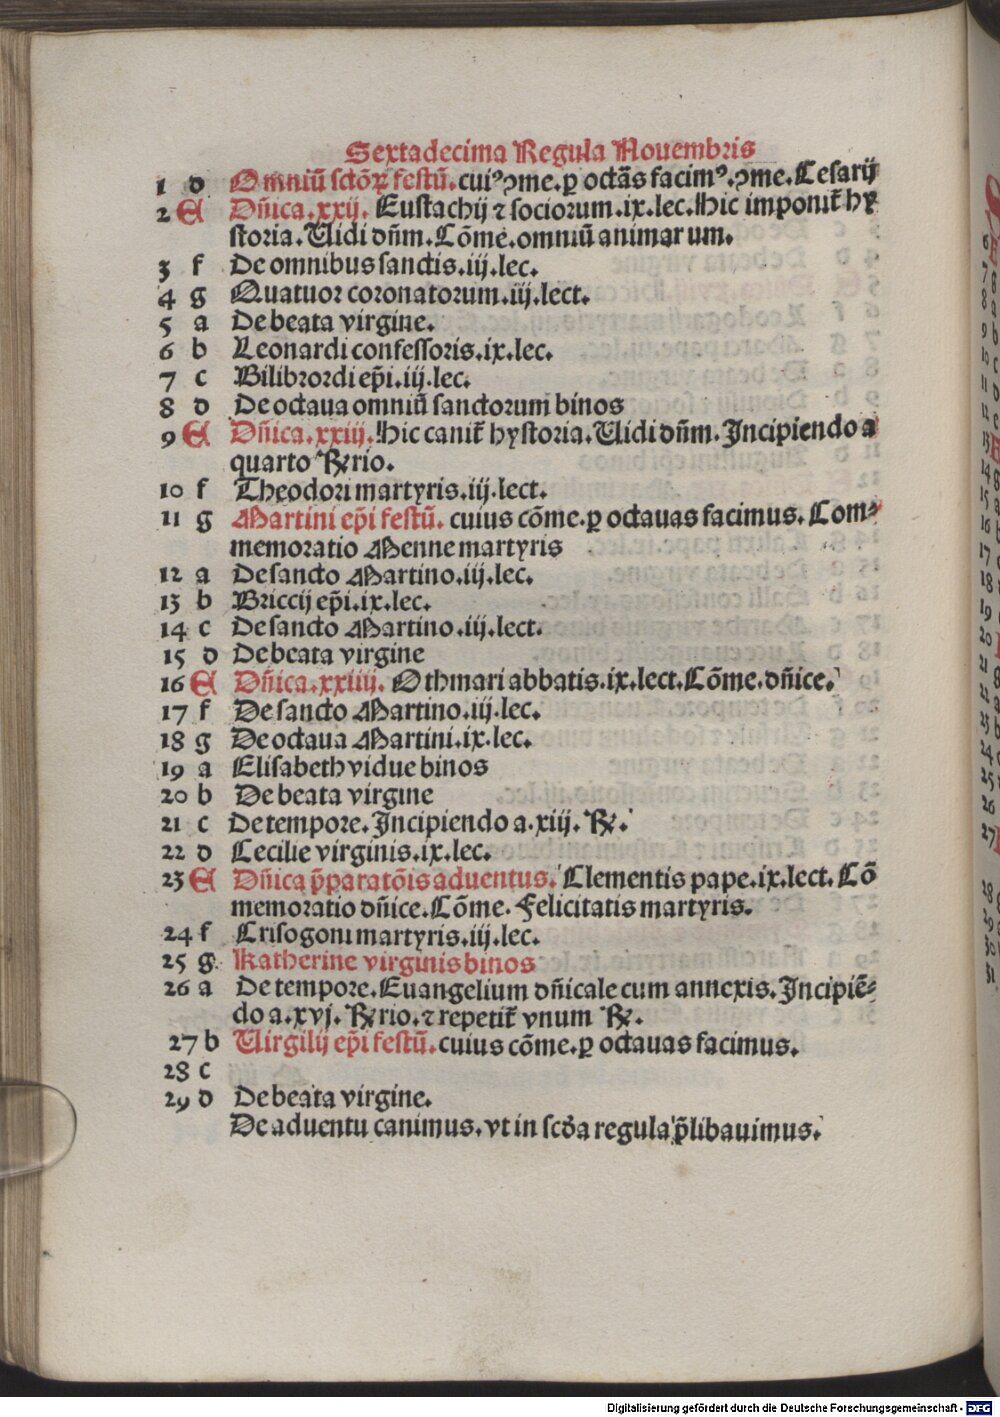 Sextadecima Regula Nouembris
1 d Omniū sctōꝝ festū. cuiꝰ ꝯme. ꝑ octās facimꝰ. ꝯme. Cesarij
2 A Dn̄ica. xxij. Eustachij ⁊ sociorum. ix. lec. Hic imponit̄ hy
storia. Uidi dn̄m. Cōme. omniū animarum.
3 f De omnibus sanctis. iij. lec.
4 g Quatuor coronatorum. iij. lect.
5 a De beata virgine.
6 b Leonardi confessoris. ix. lec.
7 c Bilibrordi ep̄i. iij. lec.
8 d De octaua omniū sanctorum binos
9 A Dn̄ica. xxiij. Hic canit̄ hystoria. Uidi dn̄m. Incipiendo a
quarto ℞rio.
10 f Theodori martyris. iij. lect.
11 g Martini ep̄i festū. cuius cōme. ꝑ octauas facimus. Com⸗
memoratio Menne martyris
12 a De sancto Martino. iij. lec.
13 b Briccij ep̄i. ix. lec.
14 c De sancto Martino. iij. lect.
15 d De beata virgine
16 A Dn̄ica. xxiiij. Othmari abbatis. ix. lect. Cōme. dn̄ice.
17 f De sancto Martino. iij. lec.
18 g De octaua Martini. ix. lec.
19 a Elisabeth vidue binos
20 b De beata virgine
21 c De tempore. Incipiendo a. xiij. ℞.
22 d Cecilie virginis. ix. lec.
23 A Dn̄ica p̄paratōis aduentus. Clementis pape. ix. lect. Cō
memoratio dn̄ice. Cōme. Felicitatis martyris.
24 f Crisogoni martyris. iij. lec.
25 g Katherine virginis binos
26 a De tempore. Euangelium dn̄icale cum annexis. Incipiē⸗
do a. xvj. ℞rio. ⁊ repetit̄ vnum ℞.
27 b Uirgilij ep̄i festū. cuius cōme. ꝑ octauas facimus.
28 c
29 d De beata virgine.
De aduentu canimus. vt in scd̄a regula p̄libauimus.
Digitalisierung gefördert durch die Deutsche Forschungsgemeinschaft - DFG